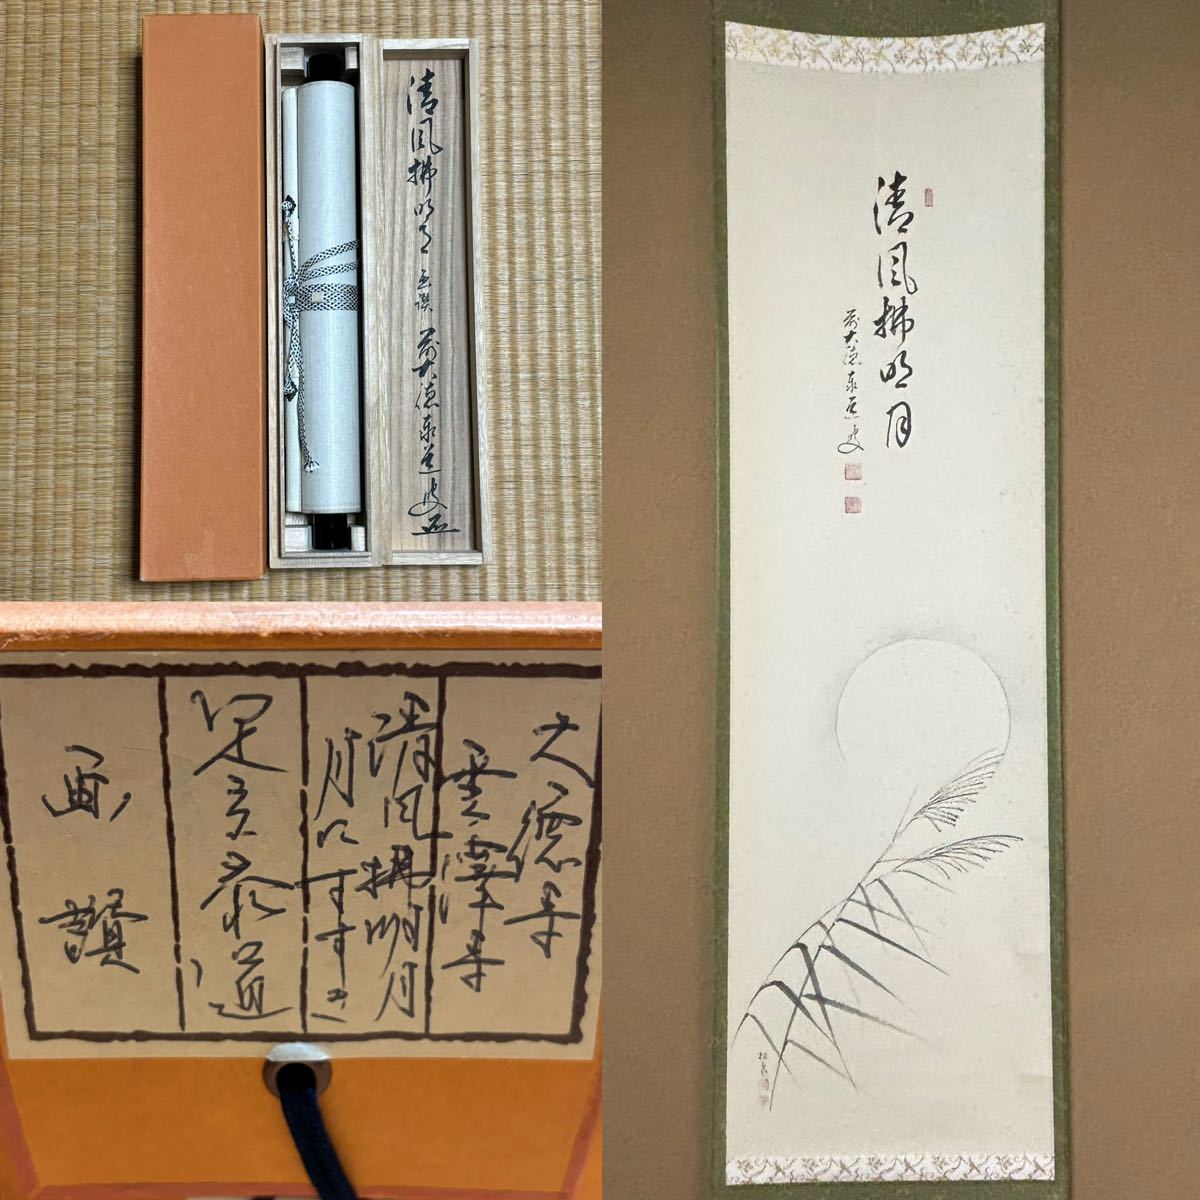 清風拂明月
画讃
前大徳泰道叟
清風拂明月
前大徳泰道叟
大徳寺
雲澤寺
清風拂明月
月にすすき
足立泰道
画讃